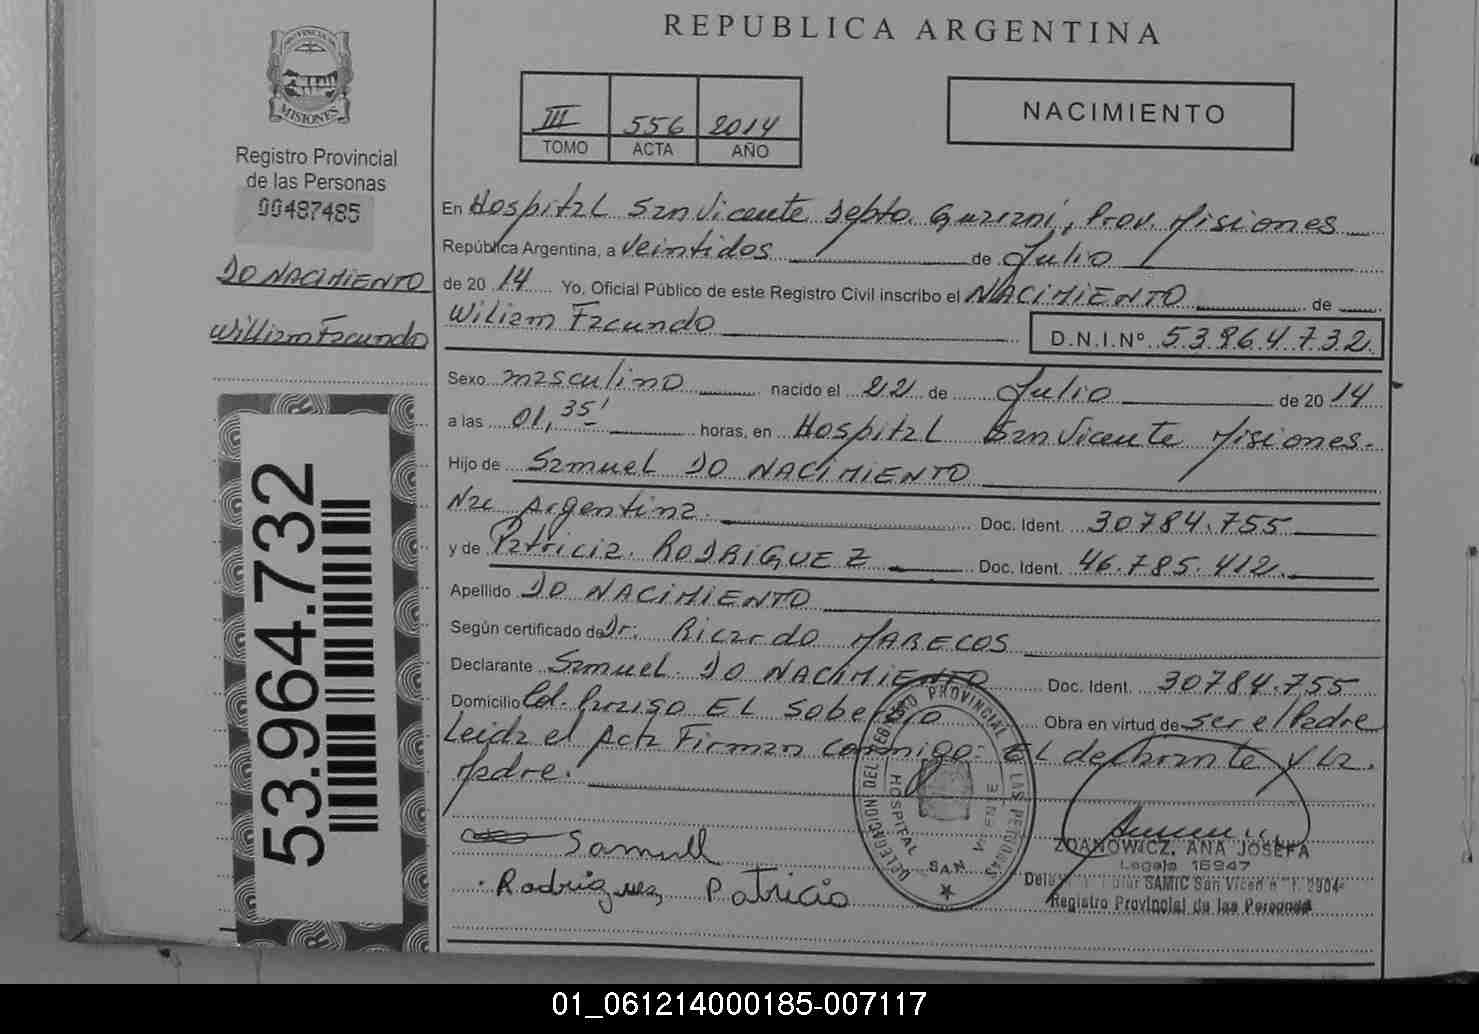 REPUBLICA ARGENTINA
PROVINCIA DE
MISIONES
Registro Provincial
de las Personas
00487485
DO NACIMIENTO
William Facundo
53.964.732
III 556 2014
TOMO ACTA AÑO
NACIMIENTO
En Hospital San Vicente Depto. Guarani, Prov. Misiones
República Argentina, a veintidos de Julio
de 20 14 Yo, Oficial Público de este Registro Civil inscribo el NACIMIENTO de
Wiliam Facundo D.N.I.Nº 53.964.732
Sexo masculino nacido el 22 de Julio de 20 14
a las 01,35' horas, en Hospital San Vicente Misiones.
Hijo de Samuel DO NACIMIENTO
Nac Argentina. Doc. Ident. 30784.755
y de Patricia. RODRIGUEZ Doc. Ident. 46.785.412.
Apellido DO NACIMIENTO
Según certificado de Dr. Ricardo MARECOS
Declarante Samuel DO NACIMIENTO Doc. Ident. 30784.755
Domicilio Col. EL Soberbio Obra en virtud de ser el Padre
Leida el Acta Firman conmigo: EL declarante y La.
Madre.
Samuel
Rodriguez, Patricia
DELEGACION DEL REGISTRO PROVINCIAL DE LAS PERSONAS
HOSPITAL SAN VICENTE
ZDANOWICZ, ANA JOSEFA
Legajo 16947
SAMIC San Vicente
Registro Provincial de las Personas
01_061214000185-007117